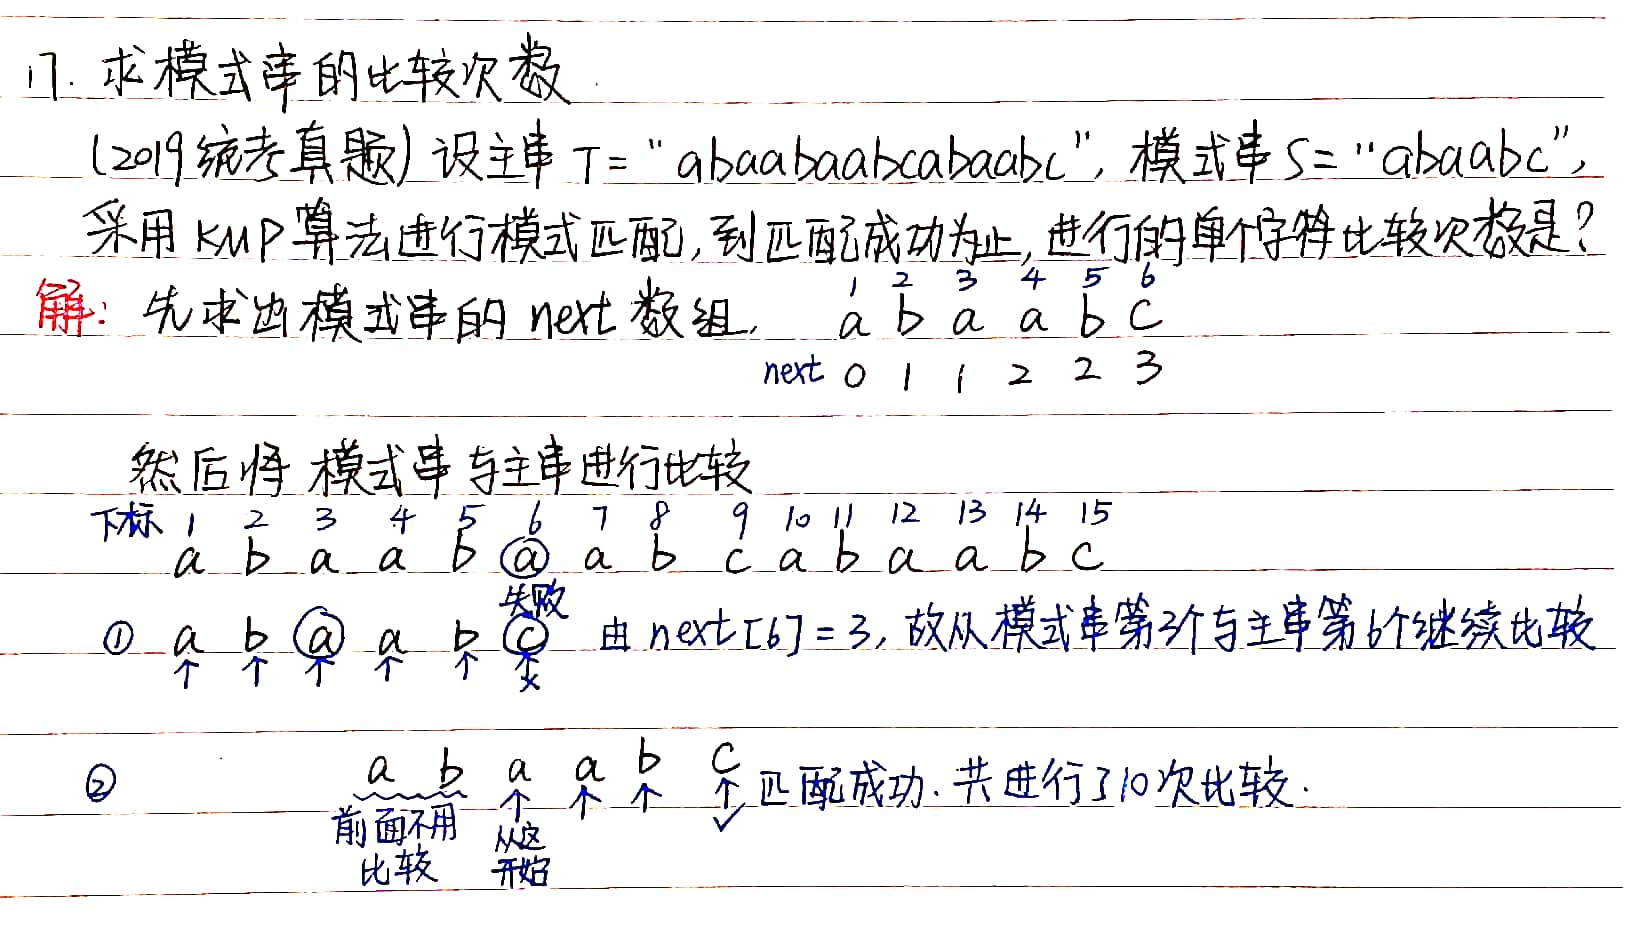 17. 求模式串的比较次数
(2019统考真题) 设主串 T = "abaabaabcabaabc", 模式串 S = "abaabc",
采用 KMP 算法进行模式匹配, 到匹配成功为止, 进行的单个字符比较次数是?
1 2 3 4 5 6
解: 先求出模式串的 next 数组. a b a a b c
next 0 1 1 2 2 3
然后将 模式串与主串进行比较
下标 1 2 3 4 5 6 7 8 9 10 11 12 13 14 15
a b a a b a a b c a b a a b c
失败
① a b a a b c 由 next[6] = 3, 故从模式串第3个与主串第6个继续比较
↑ ↑ ↑ ↑ ↑ ↑
×
② a b a a b c
↑ ↑ ↑ ↑ 匹配成功. 共进行了10次比较.
前面不用 从这 ✓
比较 开始